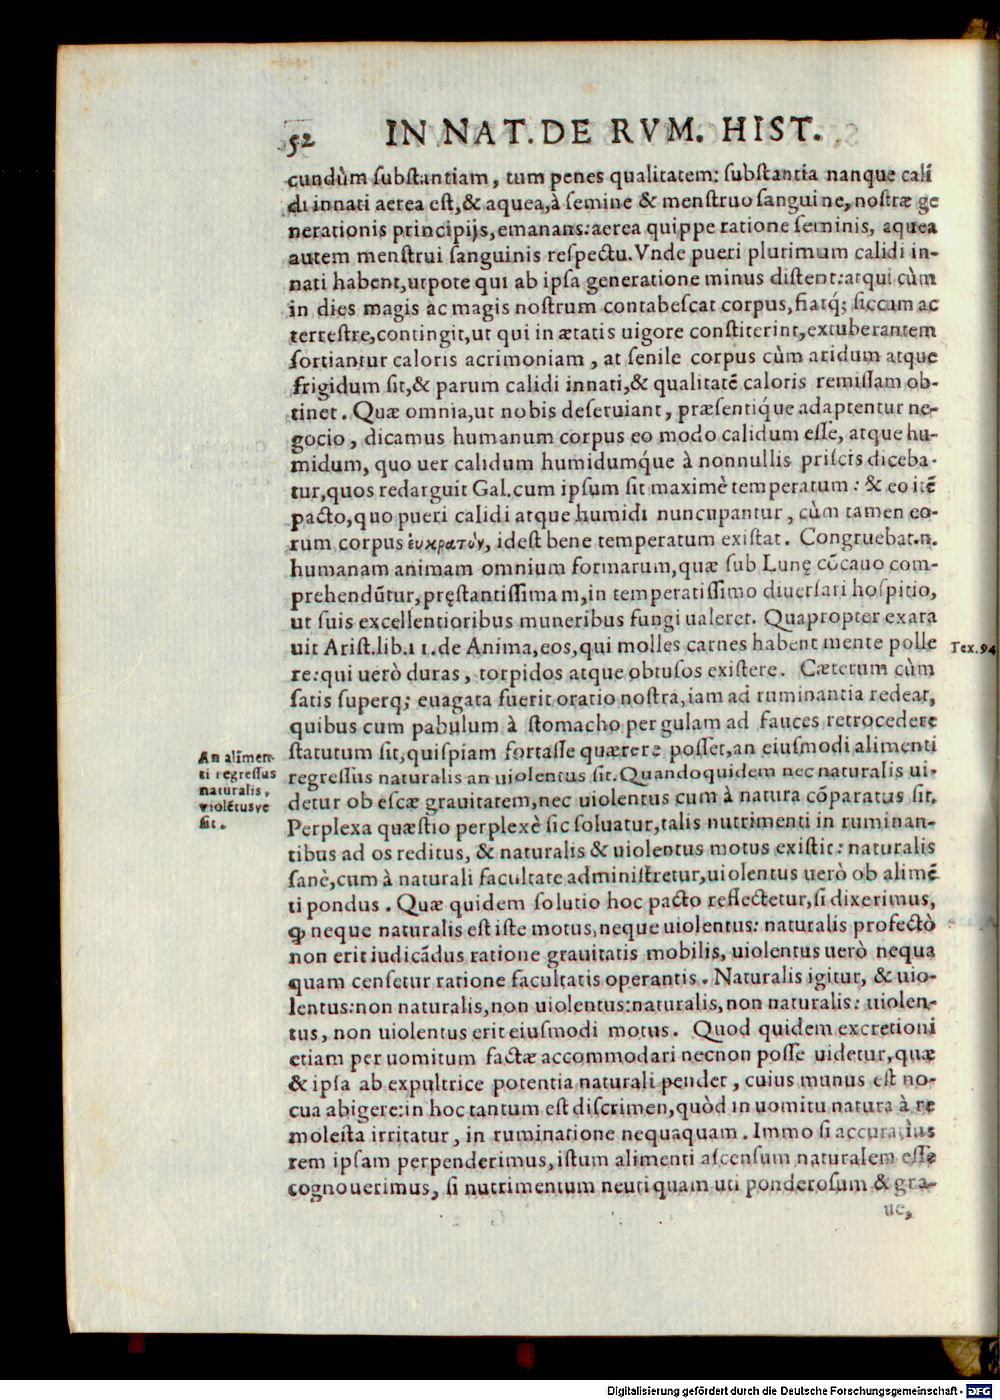 52 IN NAT. DE RVM. HIST.
cundùm ſubſtantiam, tum penes qualitatem: ſubſtantia nanque cali
di innati aerea eſt, & aquea, à ſemine & menſtruo ſanguine, noſtræ ge
nerationis principijs, emanans: aerea quippe ratione ſeminis, aquea
autem menſtrui ſanguinis reſpectu. Vnde pueri plurimum calidi in-
nati habent, utpote qui ab ipſa generatione minus diſtent: atqui cùm
in dies magis ac magis noſtrum contabeſcat corpus, fiatq́; ſiccum ac
terreſtre, contingit, ut qui in ætatis uigore conſtiterint, extuberantem
ſortiantur caloris acrimoniam, at ſenile corpus cùm aridum atque
frigidum ſit, & parum calidi innati, & qualitatē caloris remiſſam ob-
tinet. Quæ omnia, ut nobis deſeruiant, præſentiq́ue adaptentur ne-
gocio, dicamus humanum corpus eo modo calidum eſſe, atque hu-
midum, quo uer calidum humidumq́ue à nonnullis priſcis diceba-
tur, quos redarguit Gal. cum ipſum ſit maximè temperatum: & eo itē
pacto, quo pueri calidi atque humidi nuncupantur, cùm tamen eo-
rum corpus ἐυκρατὸν, ideſt bene temperatum exiſtat. Congruebat.n.
humanam animam omnium formarum, quæ ſub Lunę cōcauo com-
prehendūtur, pręſtantiſſimam, in temperatiſſimo diuerſari hoſpitio,
ut ſuis excellentioribus muneribus fungi ualeret. Quapropter exara
uit Ariſt. lib. 11. de Anima, eos, qui molles carnes habent mente polle
Tex. 94
re: qui uerò duras, torpidos atque obtuſos exiſtere. Cæterum cùm
ſatis ſuperq; euagata fuerit oratio noſtra, iam ad ruminantia redeat,
quibus cum pabulum à ſtomacho per gulam ad fauces retrocedere
ſtatutum ſit, quiſpiam fortaſſe quærere poſſet, an eiuſmodi alimenti
An alimen-
ti regreſſus
naturalis,
violētusve
ſit.
regreſſus naturalis an uiolentus ſit. Quandoquidem nec naturalis ui-
detur ob eſcæ grauitatem, nec uiolentus cum à natura cōparatus ſit.
Perplexa quæſtio perplexè ſic ſoluatur, talis nutrimenti in ruminan-
tibus ad os reditus, & naturalis & uiolentus motus exiſtit: naturalis
ſanè, cum à naturali facultate adminiſtretur, uiolentus uerò ob alimē
ti pondus. Quæ quidem ſolutio hoc pacto reflectetur, ſi dixerimus,
ꝙ neque naturalis eſt iſte motus, neque uiolentus: naturalis profectò
non erit iudicādus ratione grauitatis mobilis, uiolentus uerò nequa
quam cenſetur ratione facultatis operantis. Naturalis igitur, & uio-
lentus: non naturalis, non uiolentus: naturalis, non naturalis: uiolen-
tus, non uiolentus erit eiuſmodi motus. Quod quidem excretioni
etiam per uomitum factæ accommodari necnon poſſe uidetur, quæ
& ipſa ab expultrice potentia naturali pendet, cuius munus eſt no-
cua abigere: in hoc tantum eſt diſcrimen, quòd in uomitu natura à re
moleſta irritatur, in ruminatione nequaquam. Immo ſi accuratius
rem ipſam perpenderimus, iſtum alimenti aſcenſum naturalem eſſe
cognouerimus, ſi nutrimentum neutiquam uti ponderoſum & gra-
ue,
Digitalisierung gefördert durch die Deutsche Forschungsgemeinschaft - DFG